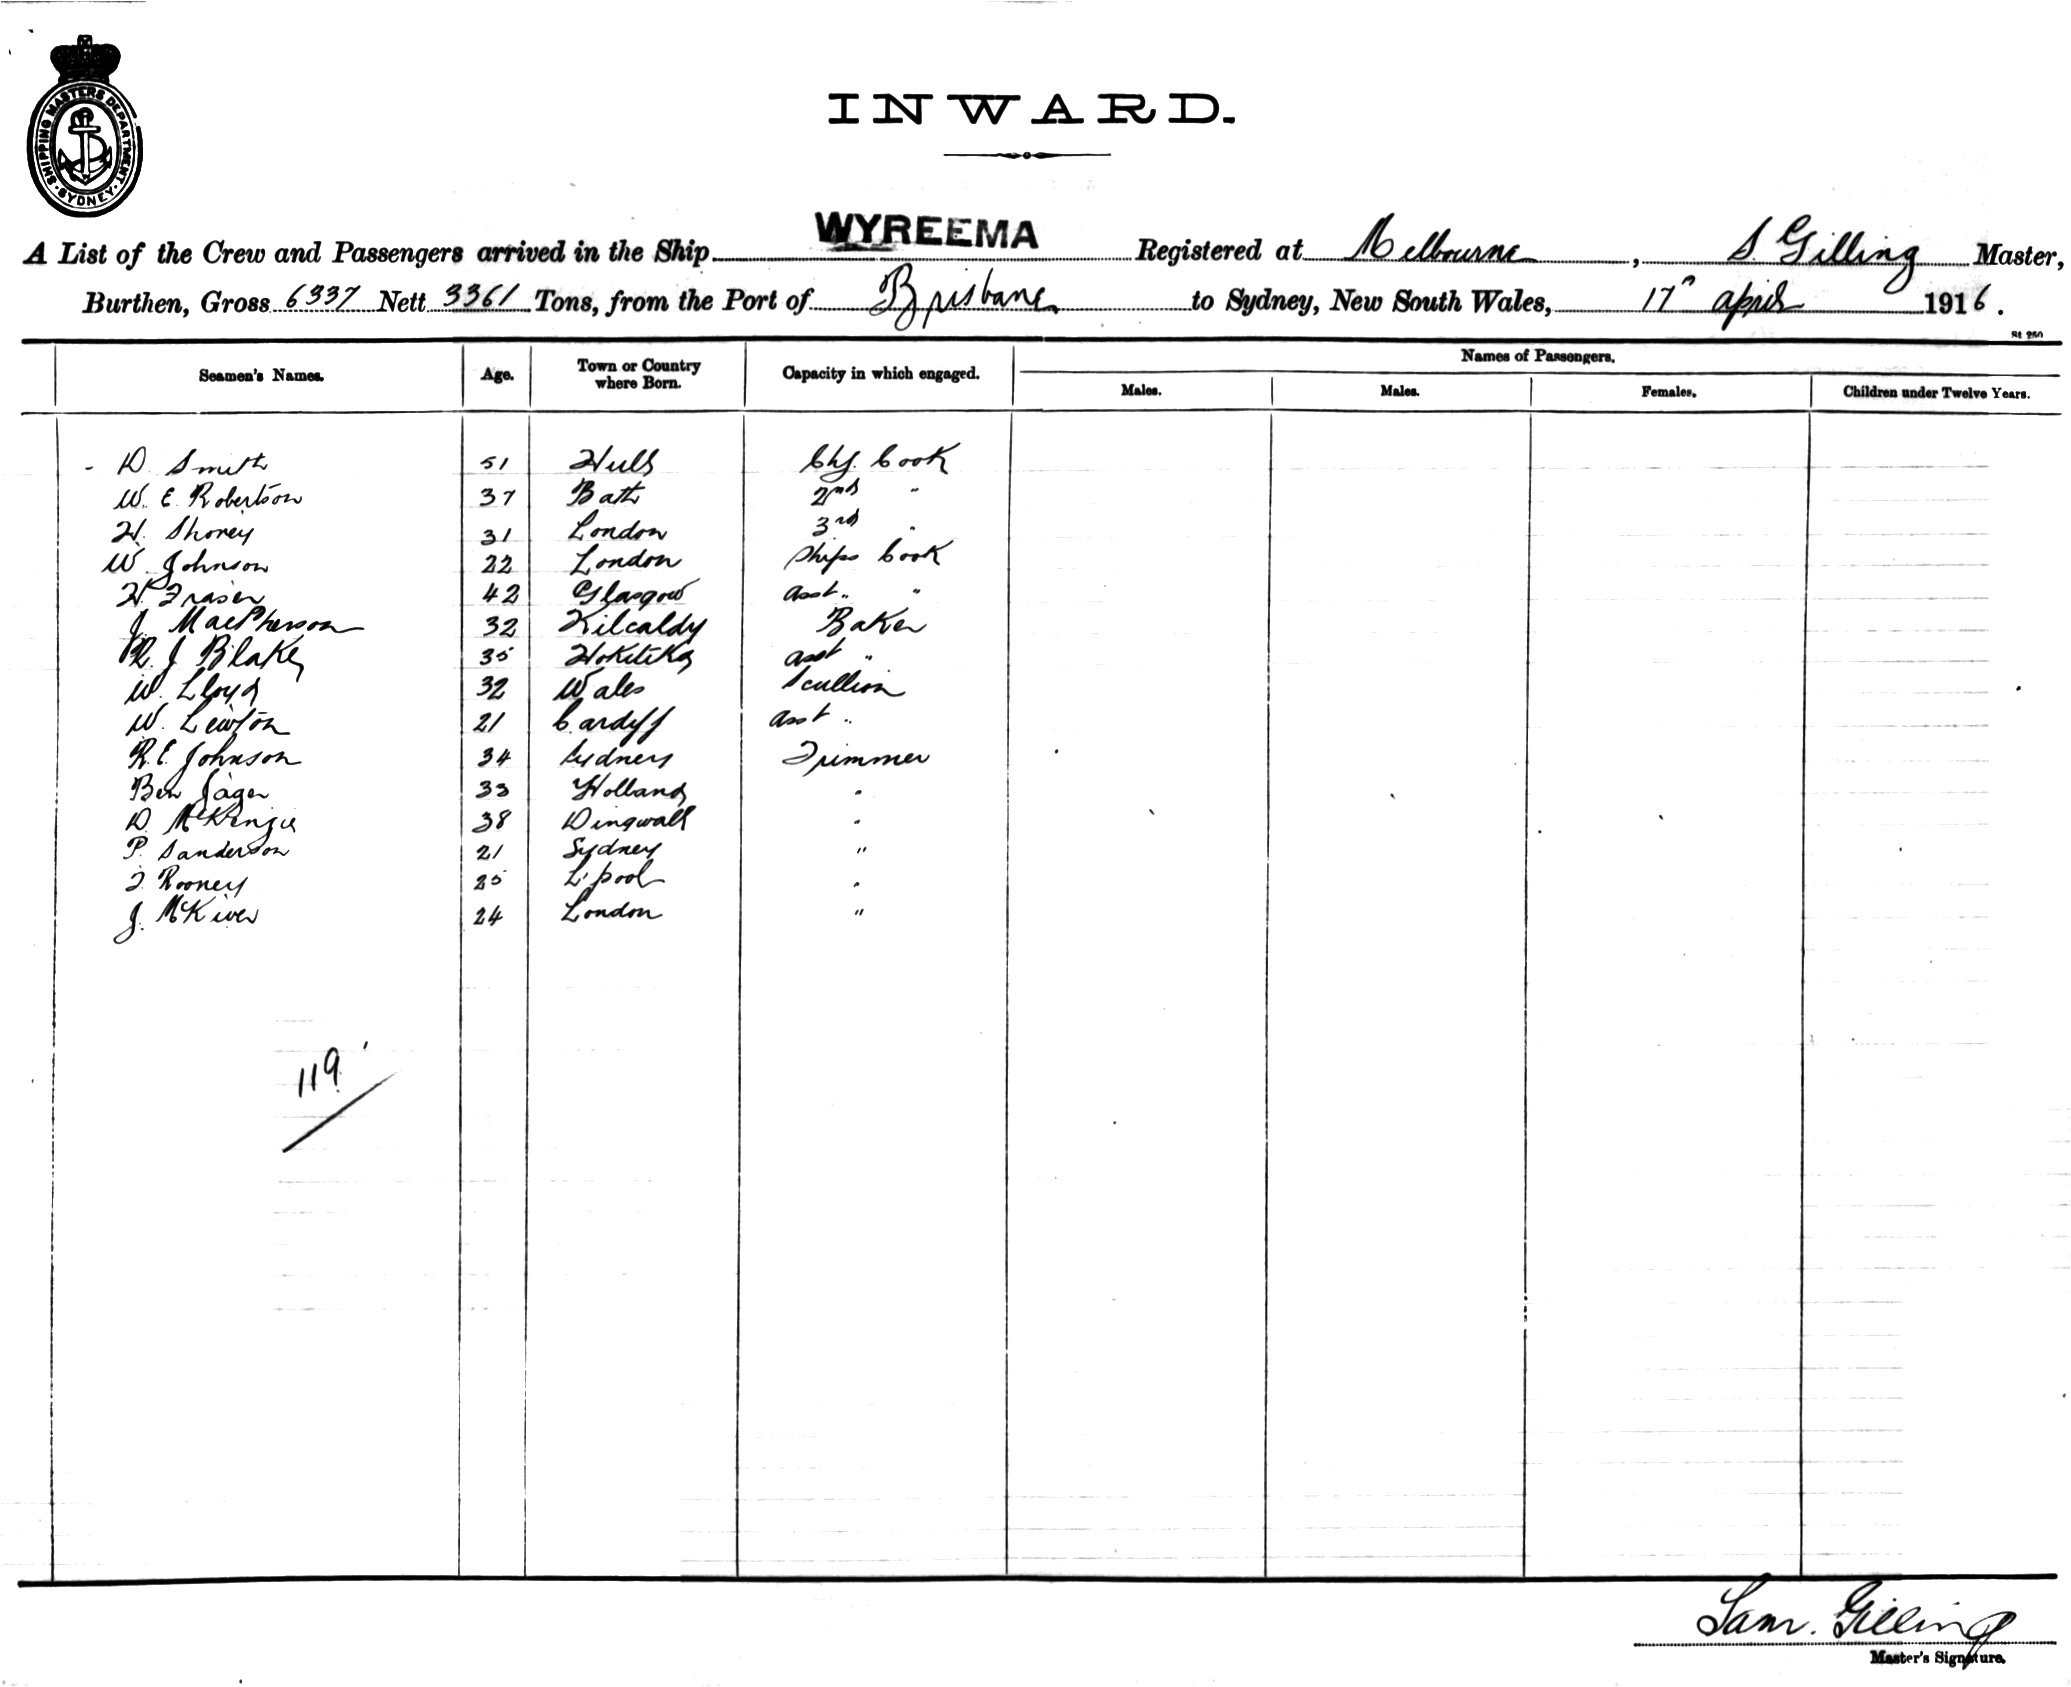 SHIPPING MASTERS DEPARTMENT · SYDNEY ·
INWARD.
A List of the Crew and Passengers arrived in the Ship WYREEMA Registered at Melbourne, S. Gilling Master,
Burthen, Gross 6337 Nett 3361 Tons, from the Port of Brisbane to Sydney, New South Wales, 17" April 1916.
St 250
Seamen's Names. Age. Town or Country where Born. Capacity in which engaged. Names of Passengers.
Males. Males. Females. Children under Twelve Years.
- D. Smith 51 Hull Chf. Cook
W. E. Robertson 37 Bath 2nd "
H. Shorey 31 London 3rd "
W. Johnson 22 London Ships Cook
H. Fraser 42 Glasgow asst. "
J. MacPherson 32 Kilcaldy Baker
R. J Blake 35 Hokitika asst "
W. Lloyd 32 Wales Scullion
W. Lewton 21 Cardiff asst "
R. E. Johnson 34 Sydney Trimmer
Ben Jager 33 Holland "
D. McKenzie 38 Dingwall "
P. Sanderson 21 Sydney "
J. Rooney 25 L'pool "
J. McKiver 24 London "
119
Sam. Gilling
Master's Signature.